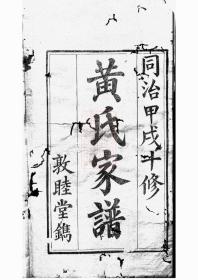 同治甲戌年修
黄氏家譜
敦睦堂鐫